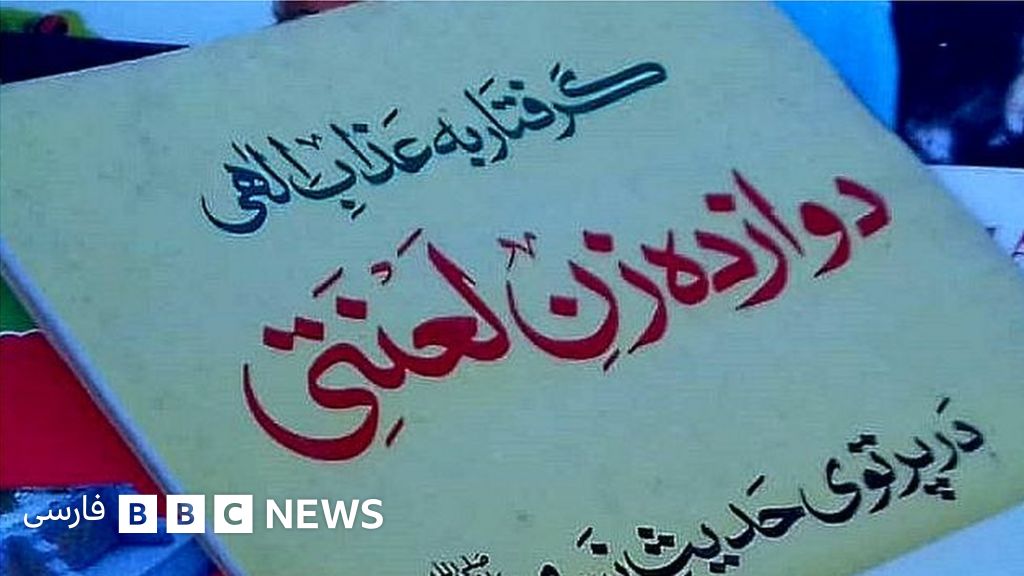 گرفتار به عَذابِ الهی
دوازده زنِ لَعنَتی
دَر پرتوی حَدیث
فارسی BBC NEWS